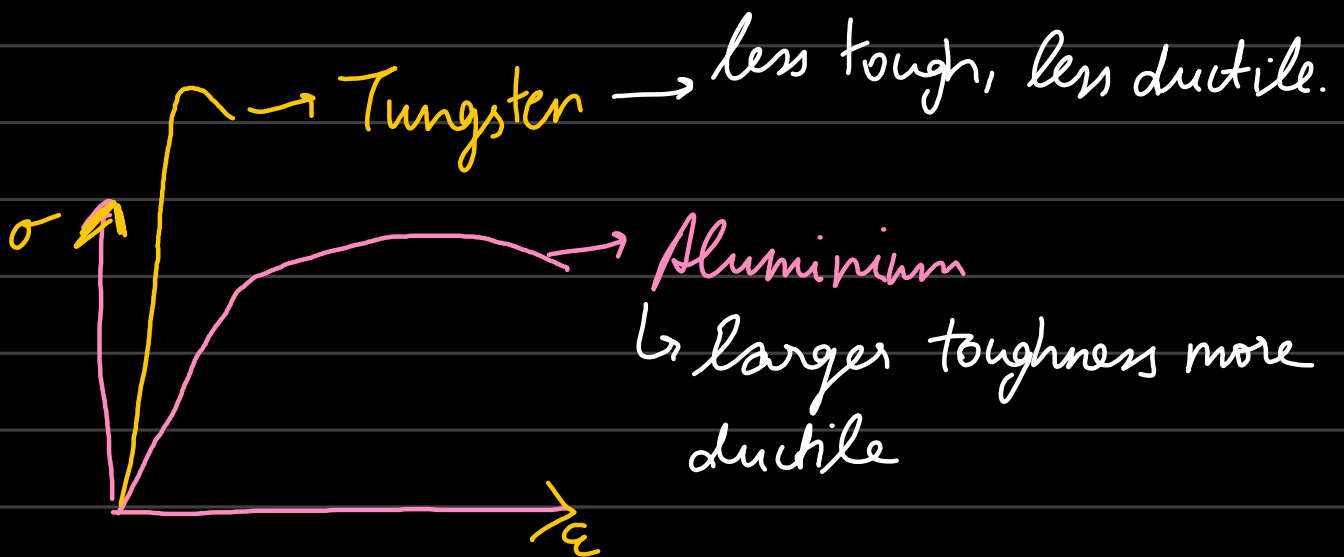 Tungsten → less tough, less ductile.
σ
Aluminium
↳ larger toughness more
ductile
ε